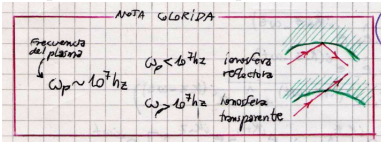 NOTA COLORIDA
Frecuencia
del plasma
ωp ~ 10⁷hz
ωp < 10⁷hz ionosfera
reflectora
ωp > 10⁷hz Ionosfera
transparente